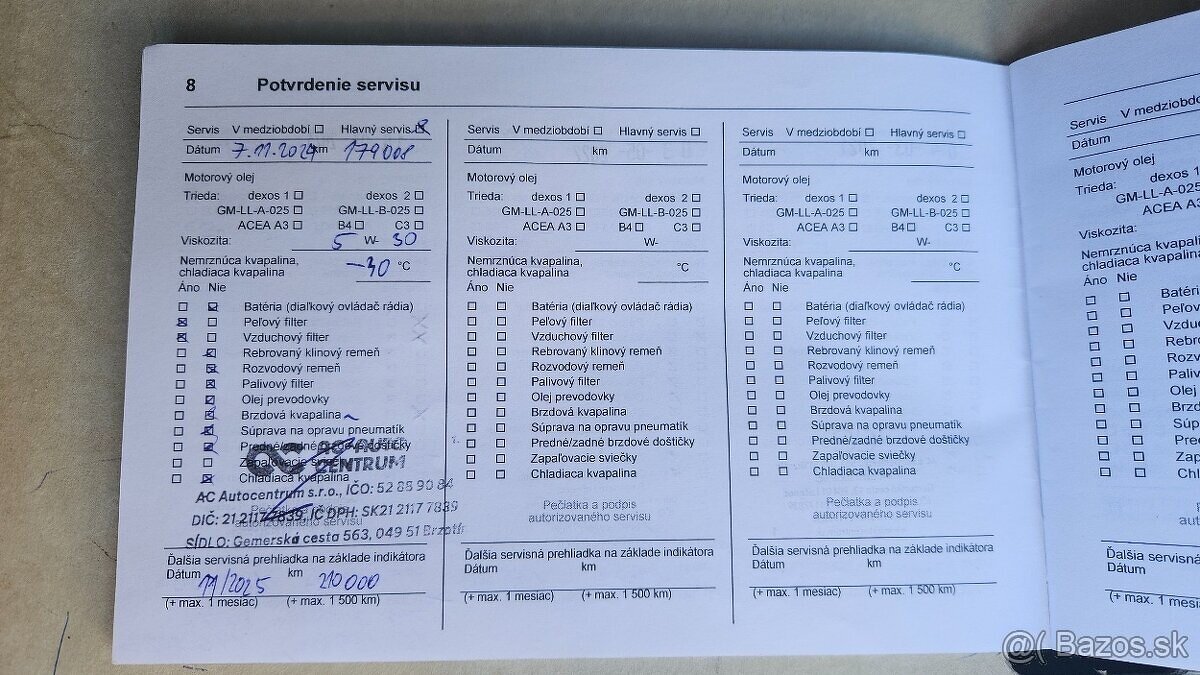 8 Potvrdenie servisu
Servis V medziobdobí ☐ Hlavný servis ☒
Dátum 7.11.2024 km 179008
Motorový olej
Trieda: dexos 1 ☐ dexos 2 ☐
GM-LL-A-025 ☐ GM-LL-B-025 ☐
ACEA A3 ☐ B4 ☐ C3 ☐
Viskozita: 5 W- 30
Nemrznúca kvapalina,
chladiaca kvapalina -30 °C
Áno Nie
Batéria (diaľkový ovládač rádia)
Peľový filter
Vzduchový filter
Rebrovaný klinový remeň
Rozvodový remeň
Palivový filter
Olej prevodovky
Brzdová kvapalina
Súprava na opravu pneumatík
Predné/zadné brzdové doštičky
Zapaľovacie sviečky
Chladiaca kvapalina
CENTRUM
AC Autocentrum s.r.o., IČO: 52 88 90 84
DIČ: 21 2117 7839, IČ DPH: SK21 2117 7839
autorizovaného servisu
SÍDLO: Gemerská cesta 563, 049 51 Brzotín
Ďalšia servisná prehliadka na základe indikátora
Dátum 11/2025 km 210000
(+ max. 1 mesiac) (+ max. 1 500 km)
Servis V medziobdobí ☐ Hlavný servis ☐
Dátum km
Motorový olej
Trieda: dexos 1 ☐ dexos 2 ☐
GM-LL-A-025 ☐ GM-LL-B-025 ☐
ACEA A3 ☐ B4 ☐ C3 ☐
Viskozita: W-
Nemrznúca kvapalina,
chladiaca kvapalina °C
Áno Nie
Batéria (diaľkový ovládač rádia)
Peľový filter
Vzduchový filter
Rebrovaný klinový remeň
Rozvodový remeň
Palivový filter
Olej prevodovky
Brzdová kvapalina
Súprava na opravu pneumatík
Predné/zadné brzdové doštičky
Zapaľovacie sviečky
Chladiaca kvapalina
Pečiatka a podpis
autorizovaného servisu
Ďalšia servisná prehliadka na základe indikátora
Dátum km
(+ max. 1 mesiac) (+ max. 1 500 km)
Servis V medziobdobí ☐ Hlavný servis ☐
Dátum km
Motorový olej
Trieda: dexos 1 ☐ dexos 2 ☐
GM-LL-A-025 ☐ GM-LL-B-025 ☐
ACEA A3 ☐ B4 ☐ C3 ☐
Viskozita: W-
Nemrznúca kvapalina,
chladiaca kvapalina °C
Áno Nie
Batéria (diaľkový ovládač rádia)
Peľový filter
Vzduchový filter
Rebrovaný klinový remeň
Rozvodový remeň
Palivový filter
Olej prevodovky
Brzdová kvapalina
Súprava na opravu pneumatík
Predné/zadné brzdové doštičky
Zapaľovacie sviečky
Chladiaca kvapalina
Pečiatka a podpis
autorizovaného servisu
Ďalšia servisná prehliadka na základe indikátora
Dátum km
(+ max. 1 mesiac) (+ max. 1 500 km)
Servis V medziobdo
Dátum
Motorový olej
Trieda: dexos 1
GM-LL-A-025
ACEA A3
Viskozita:
Nemrznúca kvapalin
chladiaca kvapalina
Áno Nie
Batéri
Peľov
Vzdu
Rebr
Rozv
Paliv
Olej
Brzd
Súp
Pre
Zap
Ch
Ďalšia servisná
Dátum
(+ max. 1 mesia
@( Bazos.sk